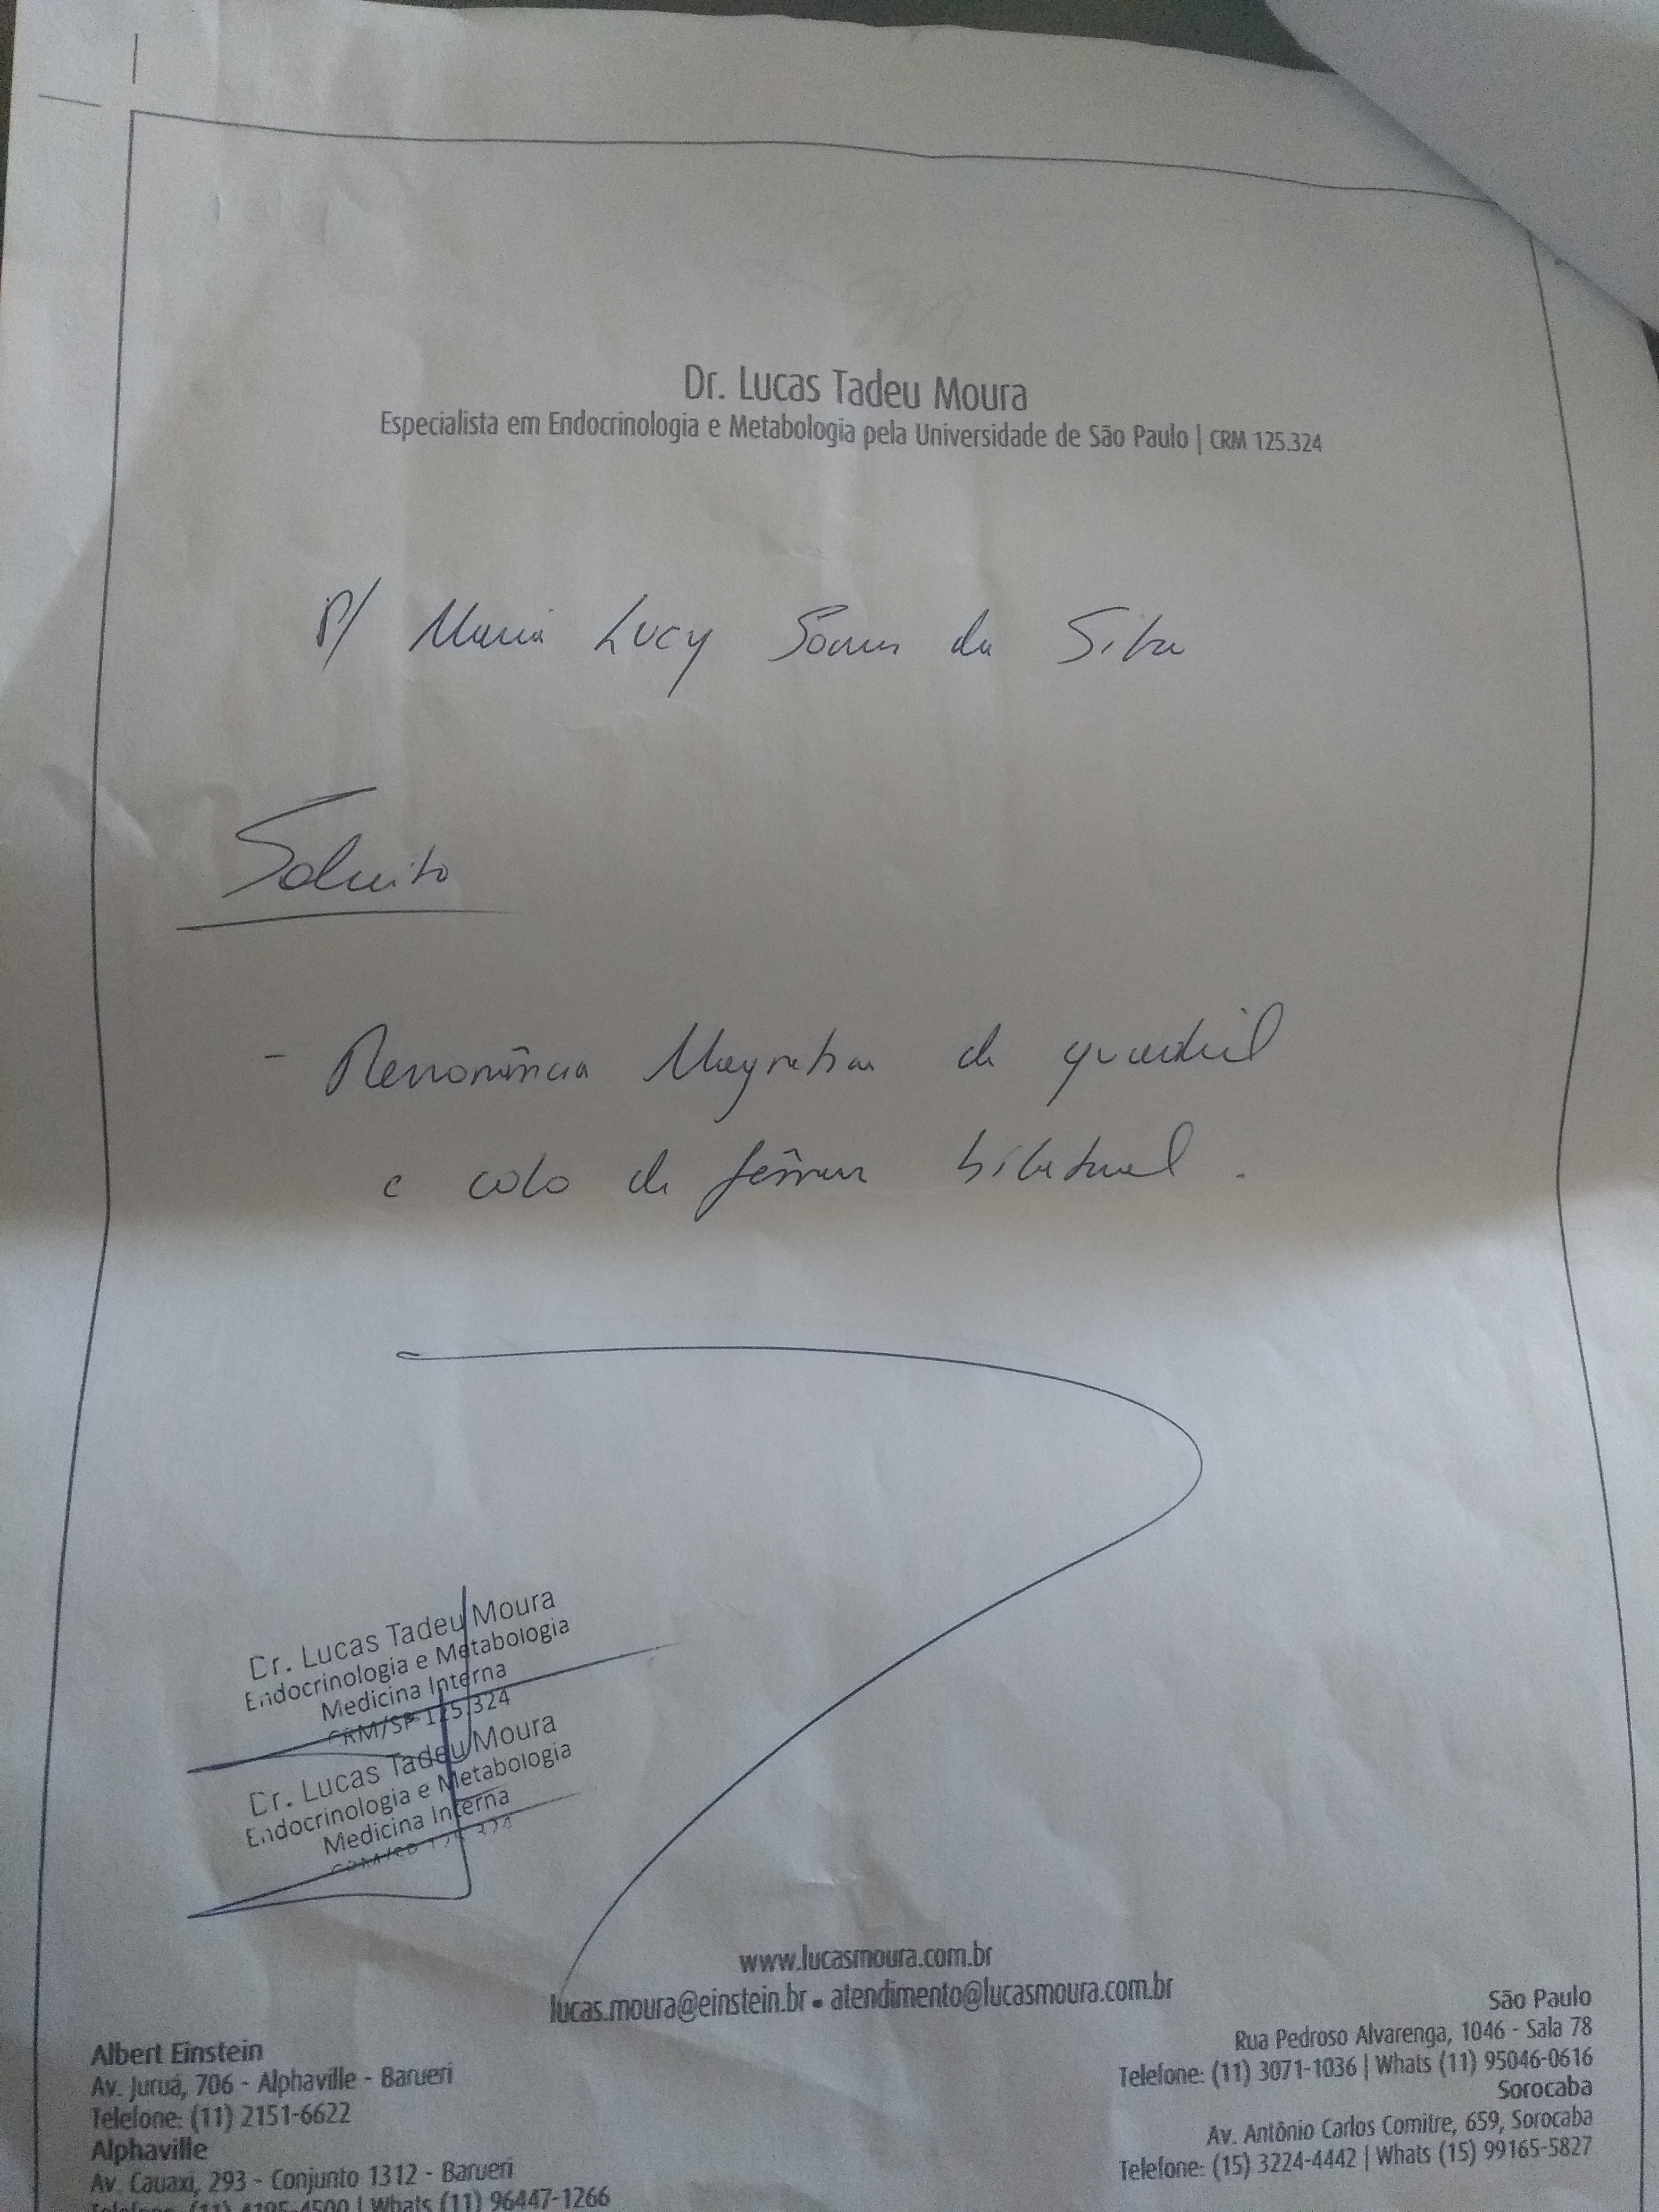 Dr. Lucas Tadeu Moura
Especialista em Endocrinologia e Metabologia pela Universidade de São Paulo | CRM 125.324
P/ Maria Lucy Soares da Silva
Solicito
- Ressonância Magnética de quadril
e colo de fêmur bilateral.
Dr. Lucas Tadeu Moura
Endocrinologia e Metabologia
Medicina Interna
CRM/SP 125.324
Dr. Lucas Tadeu Moura
Endocrinologia e Metabologia
Medicina Interna
CRM/SP 125.324
www.lucasmoura.com.br
lucas.moura@einstein.br • atendimento@lucasmoura.com.br
Albert Einstein
Av. Juruá, 706 - Alphaville - Barueri
Telefone: (11) 2151-6622
Alphaville
Av. Cauaxi, 293 - Conjunto 1312 - Barueri
Telefone: (11) 4195-4500 | Whats (11) 96447-1266
São Paulo
Rua Pedroso Alvarenga, 1046 - Sala 78
Telefone: (11) 3071-1036 | Whats (11) 95046-0616
Sorocaba
Av. Antônio Carlos Comitre, 659, Sorocaba
Telefone: (15) 3224-4442 | Whats (15) 99165-5827